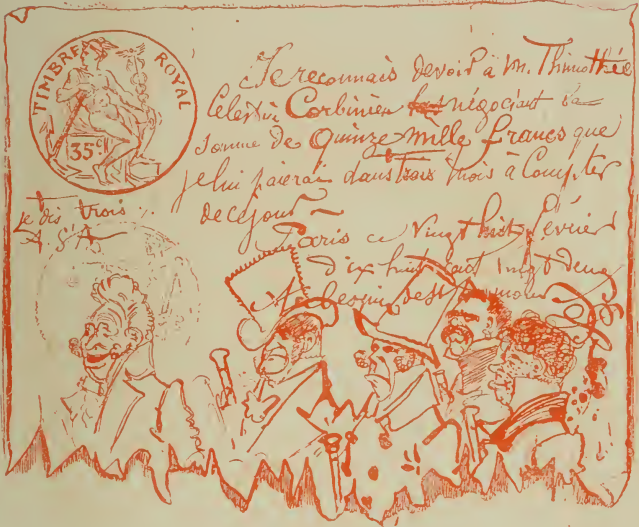 TIMBRE ROYAL
35 c
Je reconnais devoir à M. Thimothée
Celestin Corbinien négociant la
somme de Quinze mille francs que
je lui paierai dans trois mois à Compter
de ce jour
je dis trois
Paris ce Vingt huit février
dix huit cent vingt deux